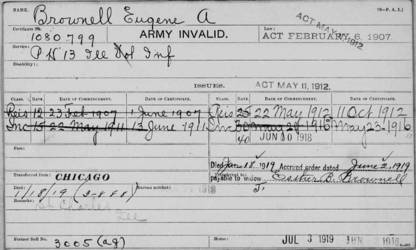 NAME, Brownell Eugene A
ACT MAY 11, 1912.
Certificate No. 1080799 ARMY INVALID. ACT FEBRUARY 6, 1907.
Service: Pvt H 13 Ill Vol Inf
Disability:
ISSUES. ACT MAY 11, 1912.
CLASS. RATE. DATE OF COMMENCEMENT. DATE OF CERTIFICATE. CLASS. RATE. DATE OF COMMENCEMENT. DATE OF CERTIFICATE.
Reis 12 23 Feb 1907 1 June 1907 Reis 22 May 1912 11 Oct 1912
Inc 15 22 May 1911 13 June 1911 Inc 30 May 1916 May 23 1916
40 JUN 10 1918
Died Jan. 18 1919 Accrued order dated June 2, 1919
Transferred from CHICAGO payable to widow Esther B. Brownell
1/18/19
Remarks:
Home:
Former Roll No. 3005 (ag) JUL 3 1919